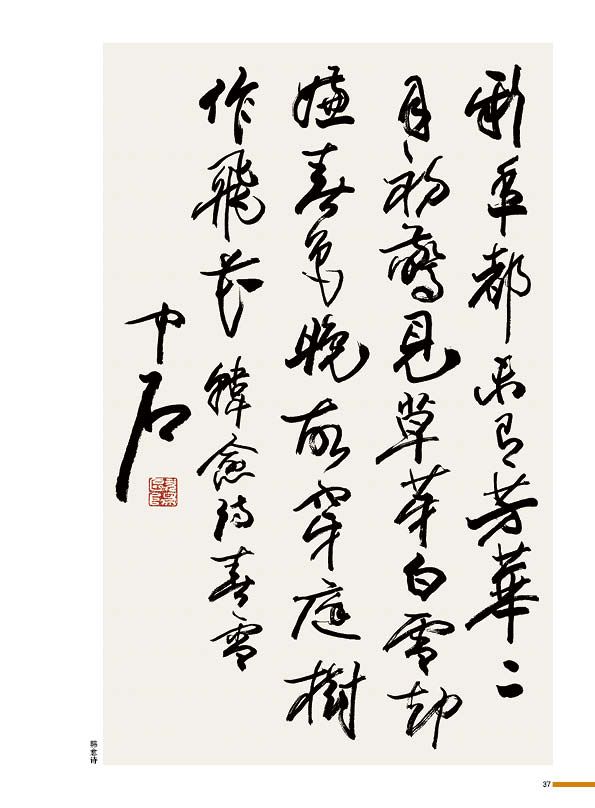 新年都未有芳華二
月初驚見草芽白雪却
嫌春色晚故穿庭樹
作飛花 韓愈詩春雪
中石
韩愈诗
37